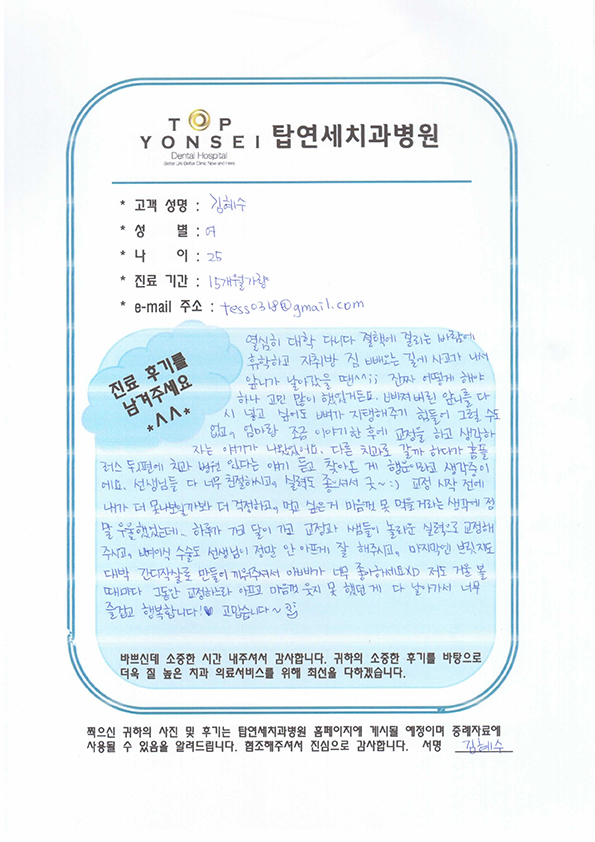 TOP
YONSEI 탑연세치과병원
Dental Hospital
Better Life Better Clinic Now and Here
* 고객 성명 : 김혜수
* 성 별 : 여
* 나 이 : 25
* 진료 기간 : 15개월가량
* e-mail 주소 : tess0318@gmail.com
진료 후기를
남겨주세요
*^^*
열심히 대학 다니다 결핵에 걸리는 바람에
휴학하고 자취방 짐 빼오는 길에 사고가 나서
앞니가 날아갔을 땐^^;; 진짜 어떻게 해야
하나 고민 많이 했었거든요. 빠져버린 앞니를 다
시 넣고 싶어도 뼈가 지탱해주기 힘들어 그럴 수도
없고, 엄마랑 조금 이야기한 후에 교정을 하고 생각하
자는 얘기가 나왔었어요. 다른 치과로 갈까 하다가 홈플
러스 맞은편에 치과 병원 있다는 얘기 듣고 찾아온 게 행운이라고 생각중이
에요. 선생님들 다 너무 친절하시고, 실력도 좋으셔서 굿~:) 교정 시작 전에
내가 더 못나보일까봐 더 걱정하고, 먹고 싶은거 마음껏 못 먹을거라는 생각에 정
말 우울했었는데.. 하루가 가고 달이 가고 교정과 쌤들이 놀라운 실력으로 교정해
주시고, 뼈이식 수술도 선생님이 정말 안 아프게 잘 해주시고, 마지막엔 브릿지도
대박 간디작살로 만들어 끼워주셔서 아빠가 너무 좋아하세요XD 저도 거울 볼
때마다 그동안 교정하느라 아프고 마음껏 웃지 못 했던 게 다 날아가서 너무
즐겁고 행복합니다!♥ 고맙습니다~
바쁘신데 소중한 시간 내주셔서 감사합니다. 귀하의 소중한 후기를 바탕으로
더욱 질 높은 치과 의료서비스를 위해 최선을 다하겠습니다.
찍으신 귀하의 사진 및 후기는 탑연세치과병원 홈페이지에 게시될 예정이며 증례자료에
사용될 수 있음을 알려드립니다. 협조해주셔서 진심으로 감사합니다. 서명 김혜수